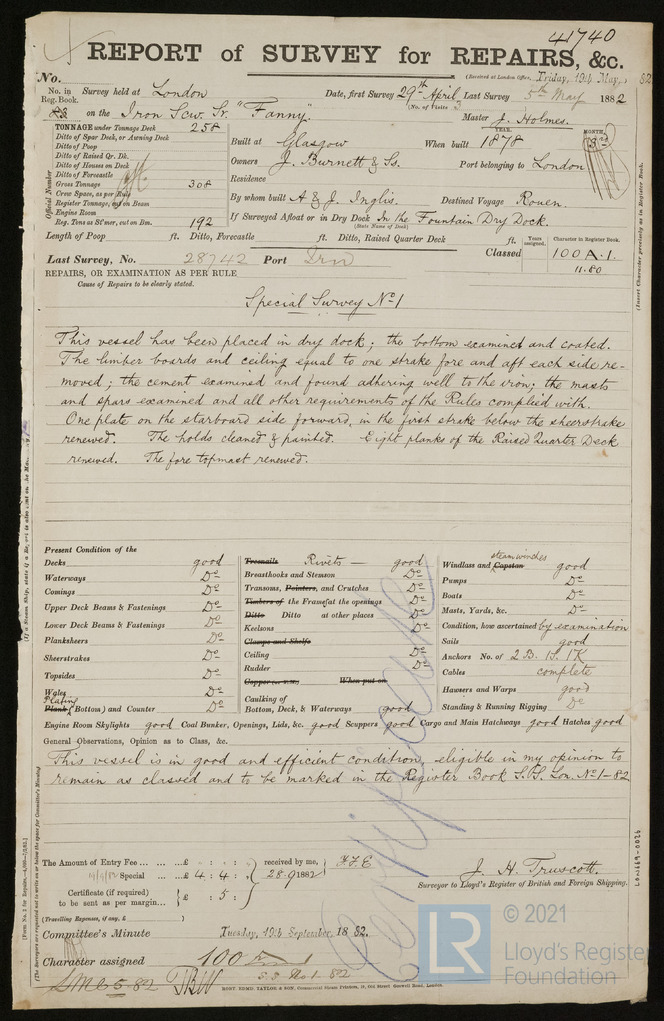 41740
REPORT of SURVEY for REPAIRS, &c.
No.
(Received at London Office, Friday, 19th May, 82
No. in Reg. Book. Survey held at London Date, first Survey 29th April Last Survey 5th May 1882
(No. of Visits 3
83 on the Iron Scw. Sr. "Fanny". Master J. Holmes.
TONNAGE under Tonnage Deck 258
Ditto of Spar Deck, or Awning Deck
Ditto of Poop
Ditto of Raised Qr. Dk.
Ditto of Houses on Deck
Ditto of Forecastle
Gross Tonnage 308
Crew Space, as per Rule
Register Tonnage, cut on Beam
Engine Room
Reg. Tons as St'mer, cut on Bm. 192
Official Number
Built at Glasgow When built YEAR. 1878 MONTH.
Owners J. Burnett & Ss. Port belonging to London
Residence
By whom built A & J. Inglis. Destined Voyage Rouen.
If Surveyed Afloat or in Dry Dock In the Fountain Dry Dock.
(State Name of Dock)
Length of Poop ft. Ditto, Forecastle ft. Ditto, Raised Quarter Deck ft.
Years assigned. Character in Register Book.
Last Survey, No. 28742 Port Irn Classed 100 A.1.
11.80
REPAIRS, OR EXAMINATION AS PER RULE
Cause of Repairs to be clearly stated.
Special Survey No. 1
This vessel has been placed in dry dock; the bottom examined and coated.
The limber boards and ceiling equal to one strake fore and aft each side re-
moved; the cement examined and found adhering well to the iron; the masts
and spars examined and all other requirements of the Rules complied with.
One plate on the starboard side forward, in the first strake below the sheerstrake
renewed. The holds cleaned & painted. Eight planks of the Raised Quarter Deck
renewed. The fore topmast renewed.
Present Condition of the
Decks good
Waterways Do
Comings Do
Upper Deck Beams & Fastenings Do
Lower Deck Beams & Fastenings Do
Planksheers Do
Sheerstrakes Do
Topsides Do
Wales Do
Plating
Plank (Bottom) and Counter Do
Treenails Rivets — good
Breasthooks and Stemson Do
Transoms, Pointers, and Crutches Do
Timbers of the Frames at the openings Do
Ditto Ditto at other places Do
Keelsons Do
Clamps and Shelfs
Ceiling Do
Rudder Do
When put on
Caulking of
Bottom, Deck, & Waterways good
steam winches
Windlass and Capstan good
Pumps Do
Boats Do
Masts, Yards, &c. Do
Condition, how ascertained by examination
Sails good
Anchors No. of 2 B. 1S. 1K
Cables complete
Hawsers and Warps good
Standing & Running Rigging Do
Engine Room Skylights good Coal Bunker, Openings, Lids, &c. good Scuppers good Cargo and Main Hatchways good Hatches good
General Observations, Opinion as to Class, &c.
This vessel is in good and efficient condition eligible in my opinion to
remain as classed and to be marked in the Register Book S.S. Lon. No. 1-82
The Amount of Entry Fee £ : : received by me, F.F.E
Special £ 4 : 4 : 28.9 1882
Certificate (if required) to be sent as per margin £ : 5 :
(Travelling Expenses, if any, £ )
J. H. Truscott.
Surveyor to Lloyd's Register of British and Foreign Shipping.
Committee's Minute Tuesday, 19th September, 18 82.
Character assigned 100 A 1
S.S. No. 1. 82
LMC 5.82
ROBT. EDMD. TAYLOR & SON, Commercial Steam Printers, 19, Old Street Goswell Road, London.
Certificate
LON469-0026
© 2021
LR
Lloyd's Register
Foundation